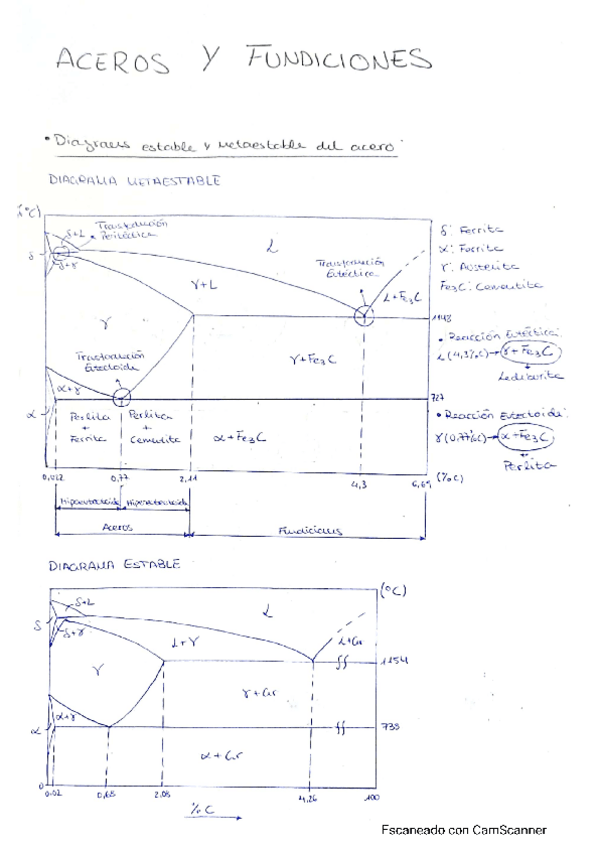 ACEROS Y FUNDICIONES
• Diagrams estable y metaestable del acero:
DIAGRAMA METAESTABLE
(°C)
Transformación
Peritéctica
δ+L
δ
δ+γ
L
γ+L
Transformación
Eutéctica
L+Fe3C
δ: Ferrita
α: Ferrita
γ: Austenita
Fe3C: Cementita
γ
1148
Transformación
Eutectoide
γ+Fe3C
• Reacción Eutéctica:
L (4,3%C)→ γ+Fe3C
Ledeburita
α+γ
727
α
Perlita
+
Ferrita
Perlita
+
Cementita
α+Fe3C
• Reacción Eutectoide:
γ (0.77%C)→ α+Fe3C
Perlita
0,022
0,77
2,11
4,3
6,67
(%C)
Hipoeutectoide
Hipereutectoide
Aceros
Fundiciones
DIAGRAMA ESTABLE
(°C)
δ+L
δ
δ+γ
L
L+γ
L+Gr
γ
1154
γ+Gr
α+γ
738
α
α+Gr
0
0.02
0,68
2,08
4,26
100
% C
Escaneado con CamScanner